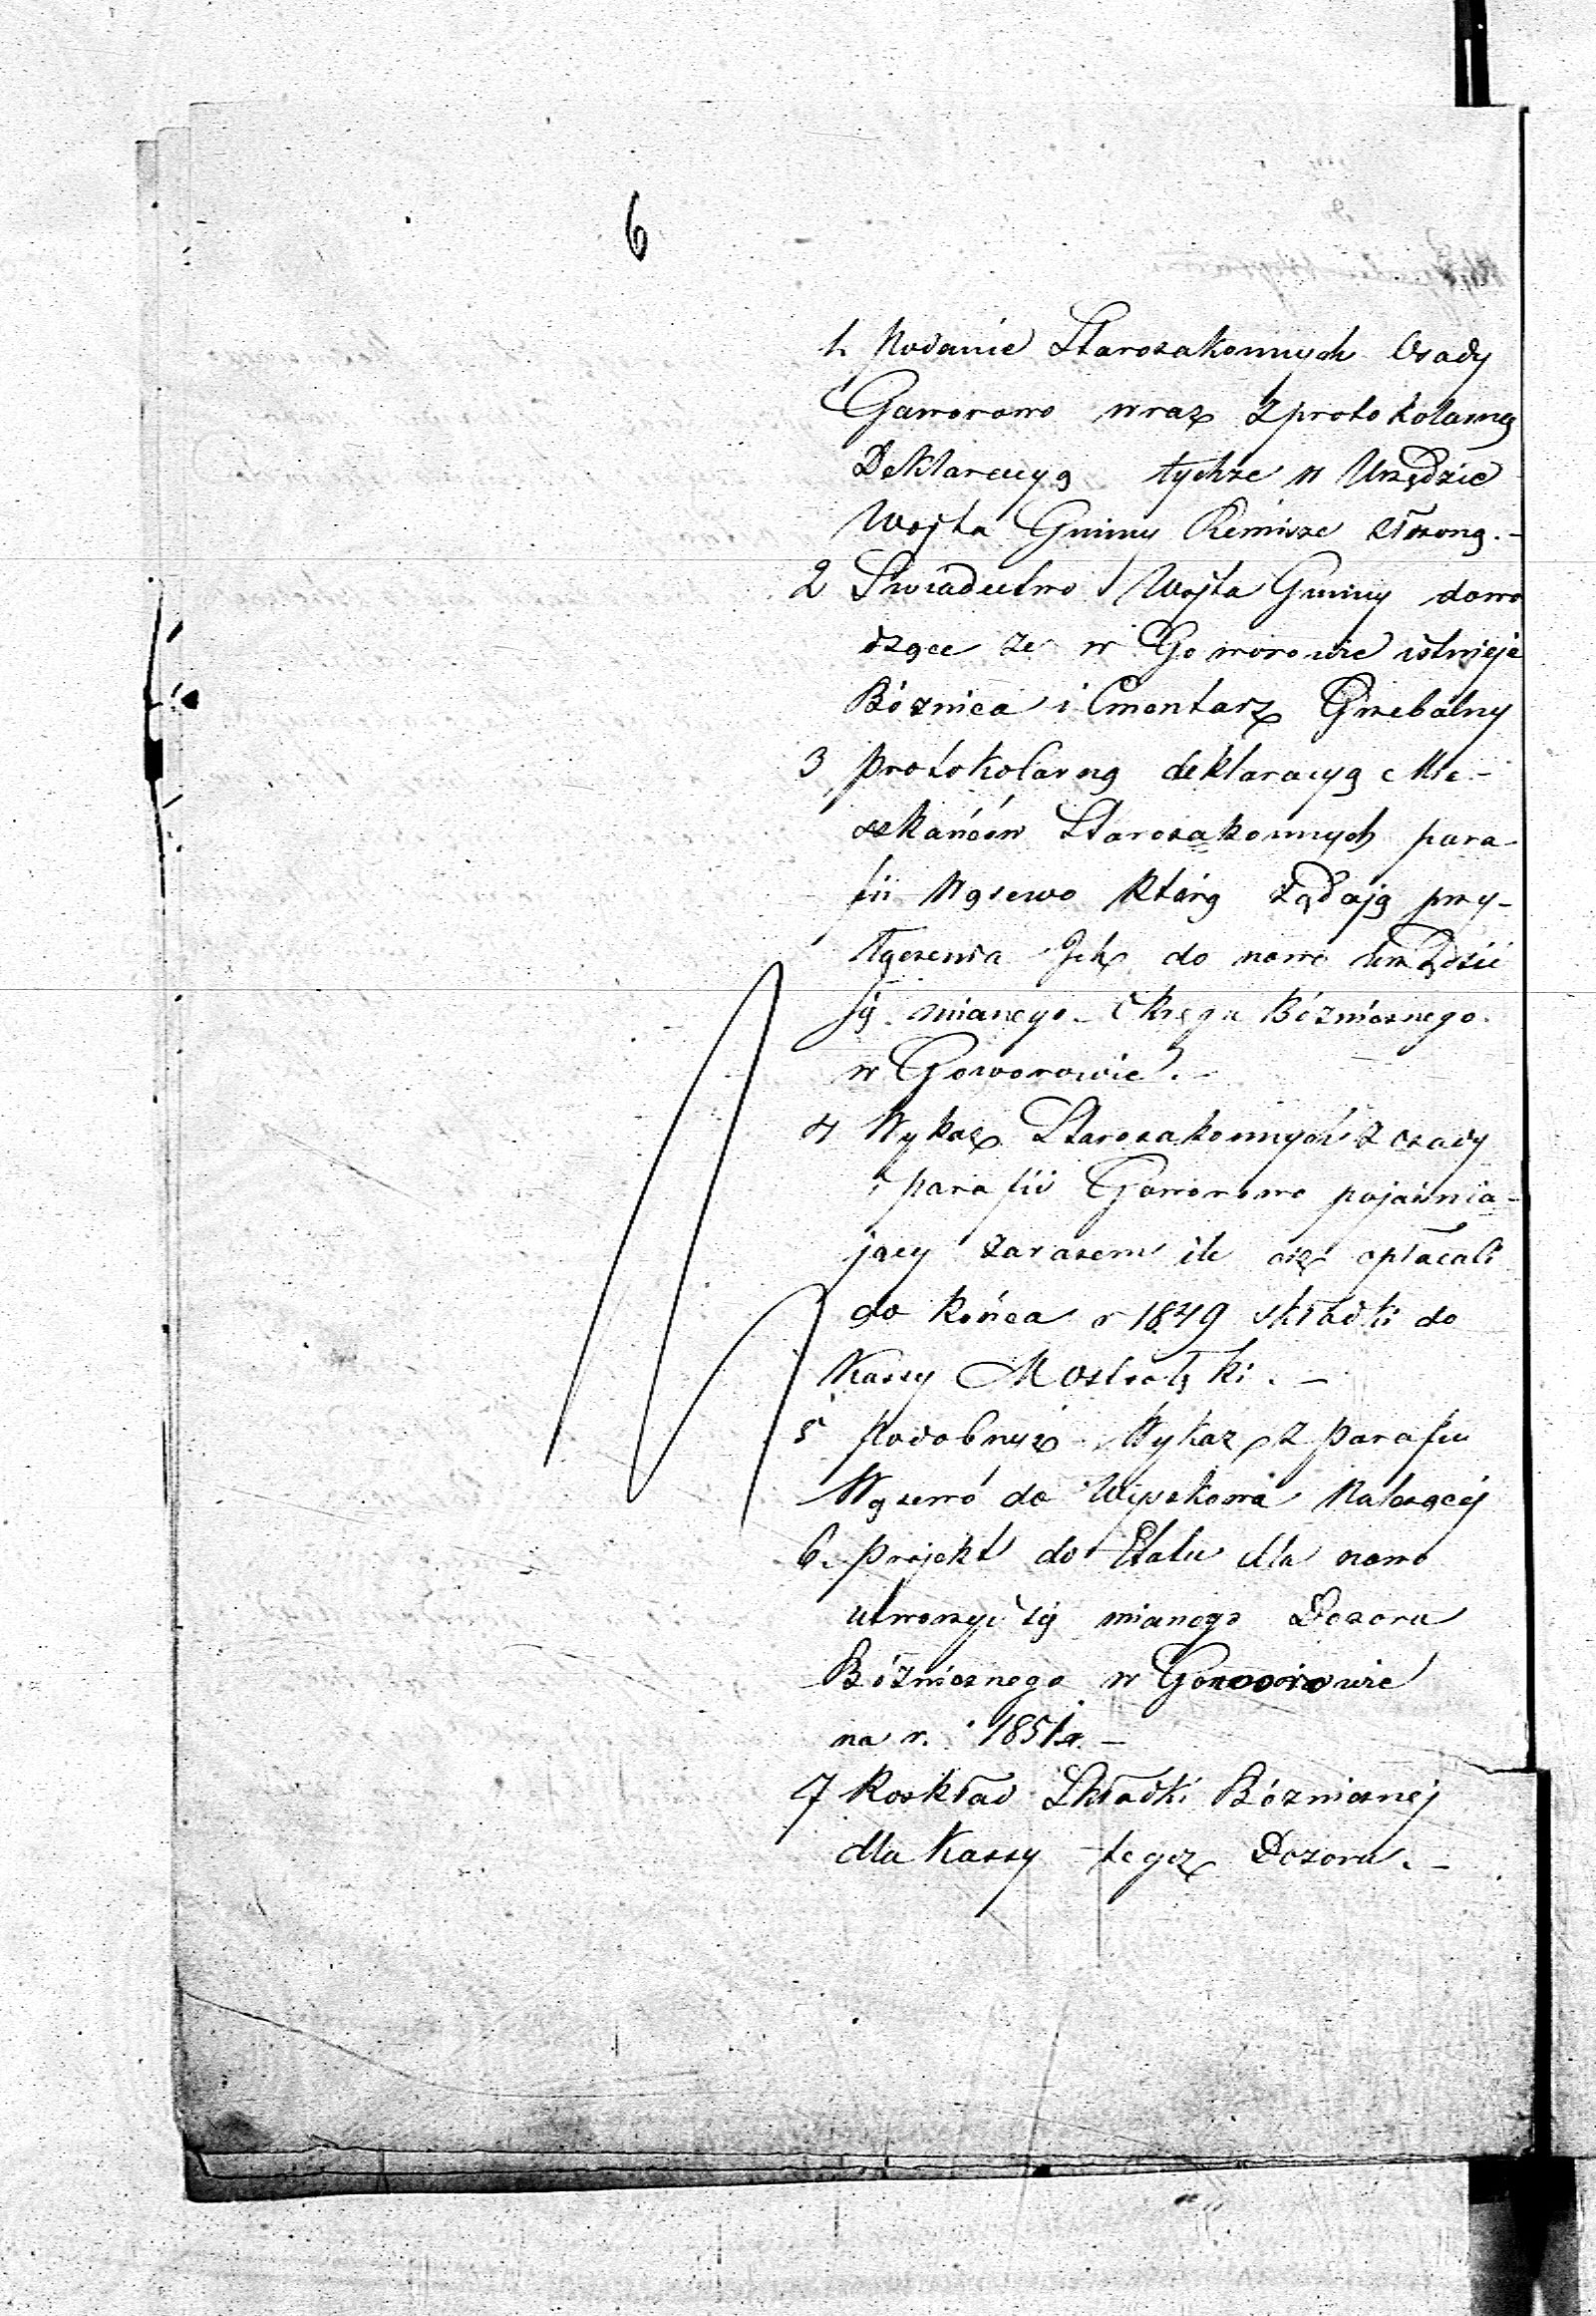 6
1. Podanie Starozakonnych Osady
Goworowo wraz z protokolarną
Deklaracyą tychże w Urzędzie
Wojta Gminy Remisze złożoną. -
2 Swiadectwo Wojta Gminy dowo
dzące ze w Goworowie istnieje
Bóznica i Cmentarz Grzebalny
3 protokolarną deklaracyą Mie-
szkańców Starozakonnych para-
fii Wąsewo którą żądają przy-
łączenia Ich do nowo urządzić
się mianego Okręgu Bóznicznego
w Goworowie. -
4 Wykaz Starozakonnych z osady
i parafii Goworowo pojaśnia-
jący zarazem ile opłacali
do końca r 1849 składki do
Kassy M Ostrołęki. -
5 Podobnyż Wykaz z parafii
Wąsewo do Wyszkowa Należącej
6. projekt do Etatu dla nowo
utworzyć się mianego Dozoru
Bóznicznego w Goworowie
na r. 1851 r. -
7 Rozkład Składki Bóznicznej
dla Kassy tegoż Dozoru. -